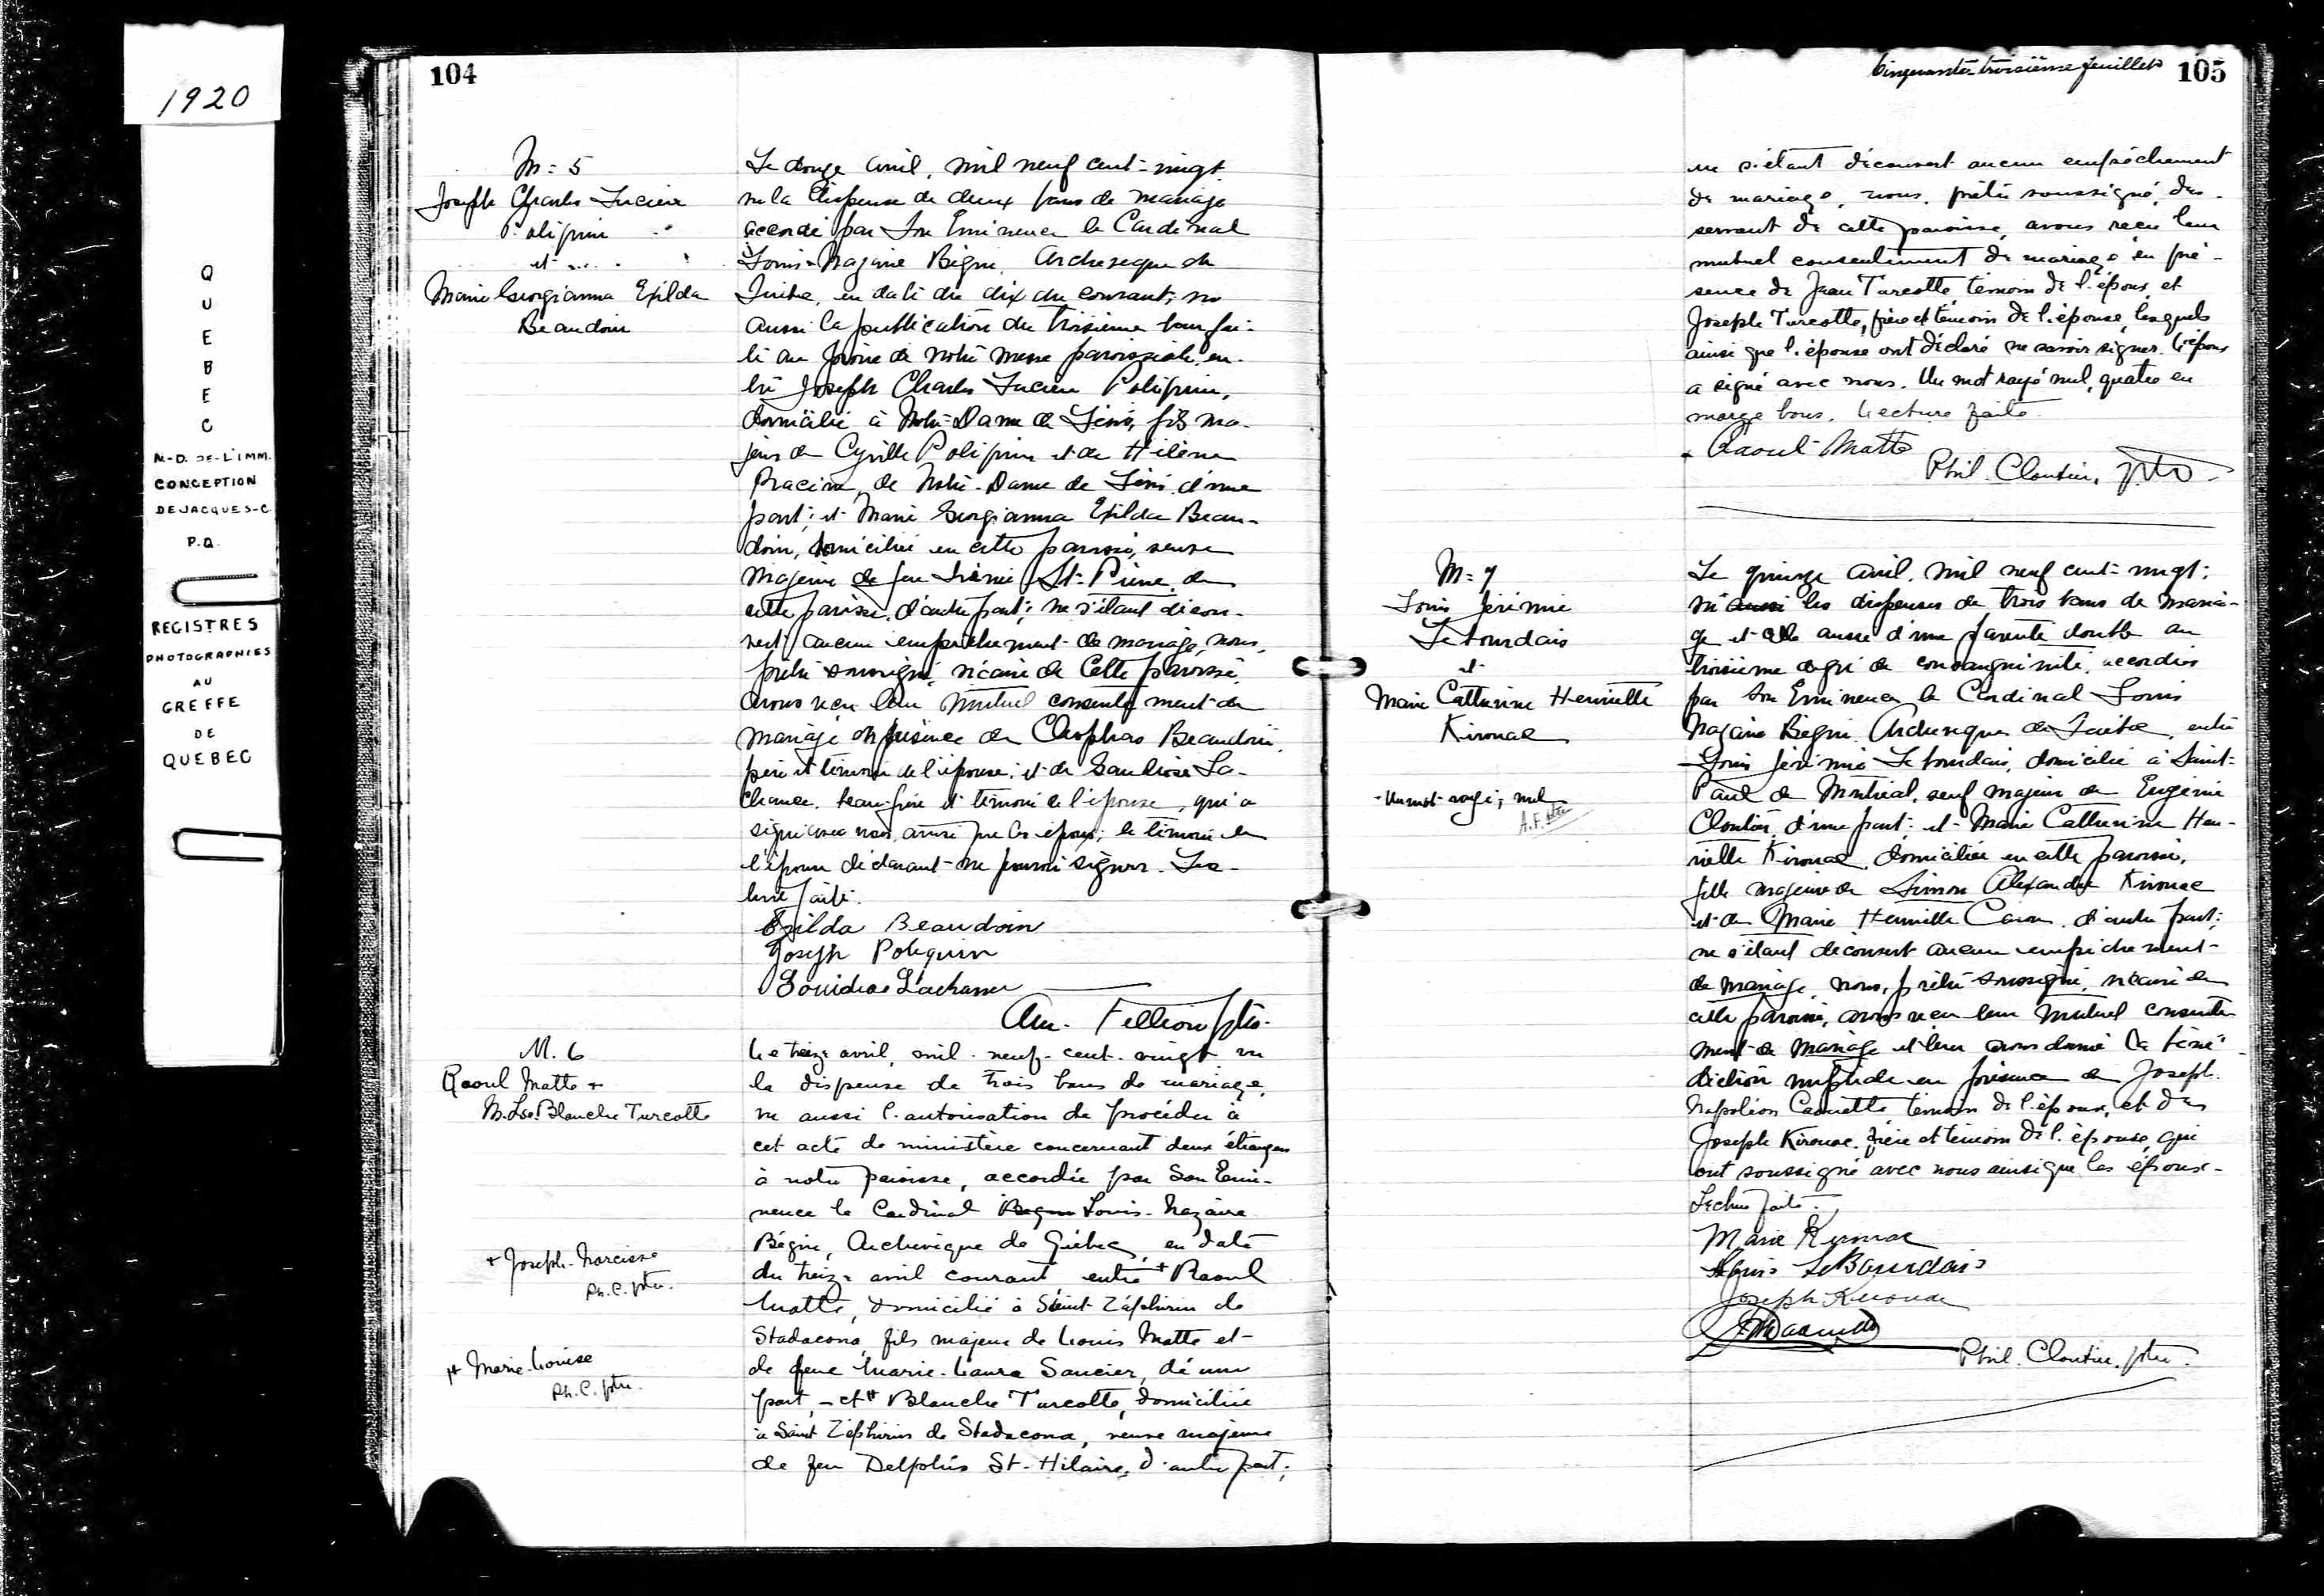 1920
QUEBEC
N-D. DE-L'IMM.
CONCEPTION
DE JACQUES-C
P.Q.
REGISTRES
PHOTOGRAPHIES
AU
GREFFE
DE
QUEBEC
104
M = 5
Joseph Charles Lucien
Poliquin
et
Marie Georgianna Exilda
Beaudoin
Le douze avril, mil neuf cent-vingt
vu la dispense de deux bans de mariage
accordé par Son Eminence le Cardinal
Louis-Nazaire Bégin, Archevêque de
Québec, en date du dix du courant; vu
aussi la publication du troisième ban fai-
te au prône de notre messe paroissiale, en-
tre Joseph Charles Lucien Poliquin,
domicilié à Notre-Dame de Lévis, fils ma-
jeur de Cyrille Poliquin et de Hélène
Racine, de Notre-Dame de Lévis, d'une
part; et Marie Georgianna Exilda Beau-
doin, domiciliée en cette paroisse, veuve
majeure de feu Irénée St-Pierre, de
cette paroisse, d'autre part; ne s'étant décou-
vert aucun empêchement de mariage, nous,
prêtre soussigné, vicaire de cette paroisse,
avons reçu leur mutuel consentement de
mariage en présence de Cléophas Beaudoin,
père et témoin de l'épouse; et de Gaudiose La-
chance, beau-frère et témoin de l'époux, qui a
signé avec nous, ainsi que les époux; le témoin de
l'épouse déclarant ne pouvoir signer. Lec-
ture faite.
Exilda Beaudoin
Joseph Poliquin
Lachance
Fillion ptre
M. 6
Raoul Matte +
M. Lse. Blanche Turcotte
+ Joseph-Narcisse
Ph. C. ptre.
++ Marie-Louise
Ph. C. ptre.
Le treize avril, mil-neuf-cent-vingt vu
la dispense de trois bans de mariage,
vu aussi l'autorisation de procéder à
cet acte de ministère concernant deux étrangers
à notre paroisse, accordée par Son Emi-
nence le Cardinal Bégin Louis-Nazaire
Bégin, Archevêque de Québec, en date
du treize avril courant entre + Raoul
Matte, domicilié à Saint-Zéphirin de
Stadacona, fils majeur de Louis Matte et
de feue Marie-Laura Saucier, d'une
part, - et ++ Blanche Turcotte, domiciliée
à Saint Zéphirin de Stadacona, veuve majeure
de feu Delphis St-Hilaire, d'autre part;
Cinquante-troisième feuillet
105
ne s'étant découvert aucun empêchement
de mariage, nous, prêtre soussigné, des-
servant de cette paroisse, avons reçu leur
mutuel consentement de mariage en pré-
sence de Jean Turcotte témoin de l'époux et
Joseph Turcotte, frère et témoin de l'épouse, lesquels
ainsi que l'épouse ont déclaré ne savoir signer. L'époux
a signé avec nous. Un mot rayé nul, quatre en
marge bons. Lecture faite.
Raoul Matte
Phil. Cloutier, ptre
M = 7
Louis Jérémie
Lebourdais
et
Marie Catherine Henriette
Kirouac
- Un mot rayé; nul
A.F. ptre
Le quinze avril, mil neuf cent-vingt;
vu aussi les dispenses de trois bans de maria-
ge et celle aussi d'une parenté double au
troisième degré de consanguinité, accordées
par Son Eminence le Cardinal Louis
Nazaire Bégin, Archevêque de Québec, entre
Louis Jérémie Lebourdais, domicilié à Saint-
Paul de Montréal, veuf majeur de Eugénie
Cloutier, d'une part; et Marie Catherine Hen-
riette Kirouac, domiciliée en cette paroisse,
fille majeure de Simon Alexandre Kirouac
et de Marie Henriette Caron, d'autre part;
ne s'étant découvert aucun empêchement
de mariage, nous, prêtre soussigné, vicaire de
cette paroisse, avons reçu leur mutuel consente-
ment de mariage et leur avons donné la béné-
diction nuptiale en présence de Joseph
Napoléon Caouette témoin de l'époux, et de
Joseph Kirouac, frère et témoin de l'épouse, qui
ont soussigné avec nous ainsi que les époux-
Lecture faite.
Marie Kirouac
Louis LeBourdais
Joseph Kirouac
Caouette
Phil. Cloutier. ptre.